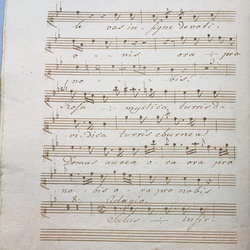 le vas insigne devoti-
o - nis ora pro
no - bis.
Rosa mystica turris da-
vidica turris eburnea
Domus aurea o - ra ora pro
no - bis o - ra pro nobis
Adagio
Salus infir-